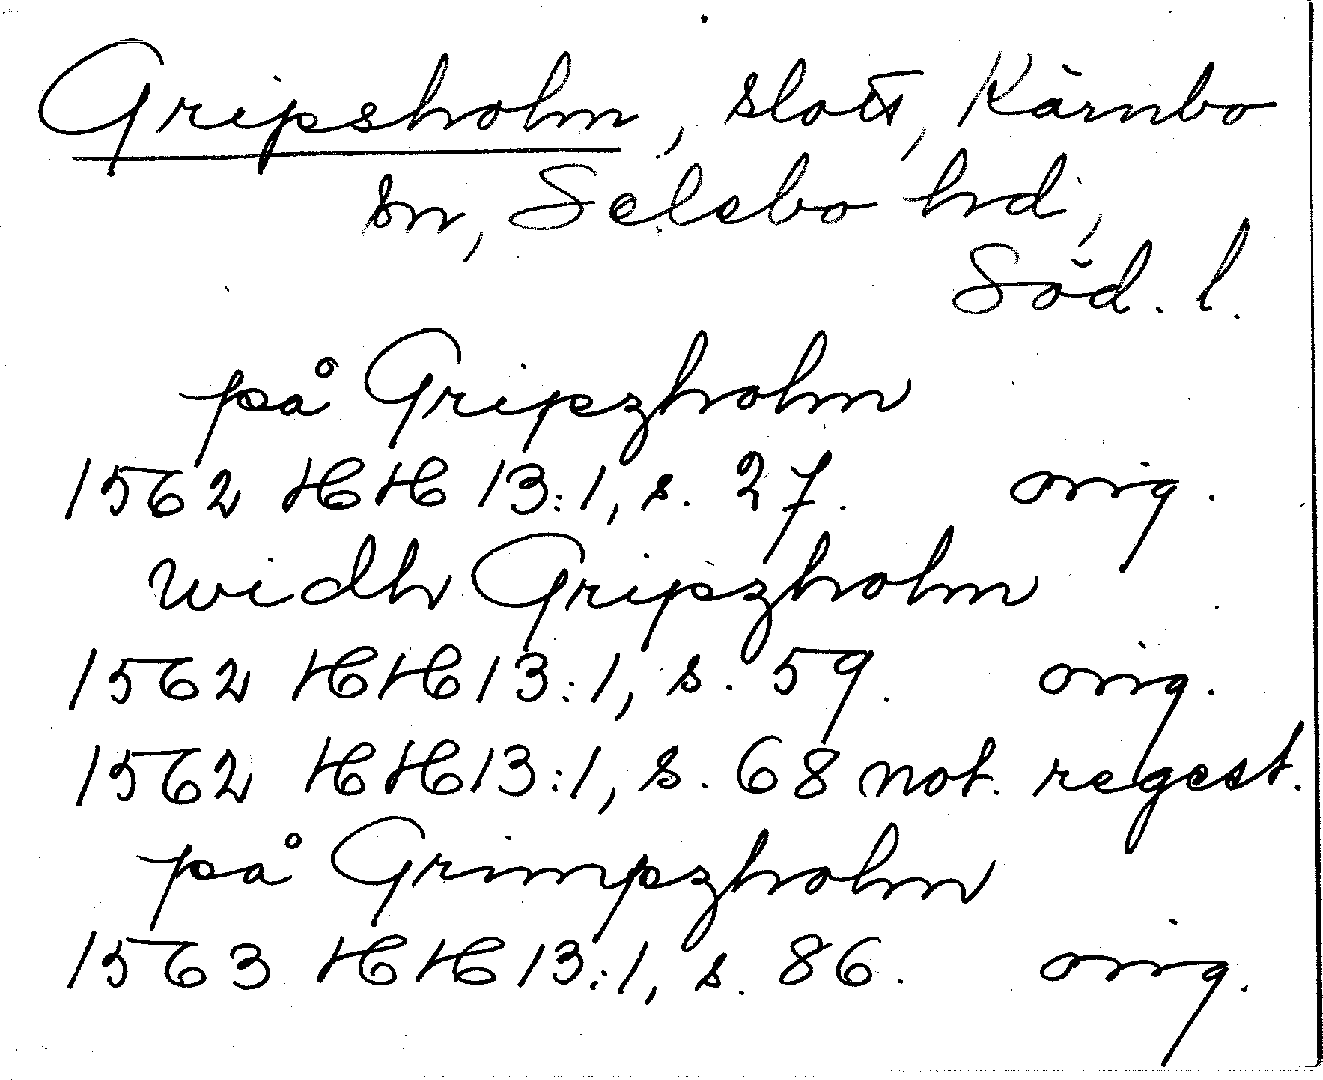 Gripsholm, slott, Kärnbo
sn, Selebo hrd,
Söd. l.
på Gripzholm
1562 HH 13:1, s. 27. orig.
widh Gripzholm
1562 HH 13:1, s. 59. orig.
1562 HH 13:1, s. 68 not. regest.
på Grimpzholm
1563 HH 13:1, s. 86. orig.